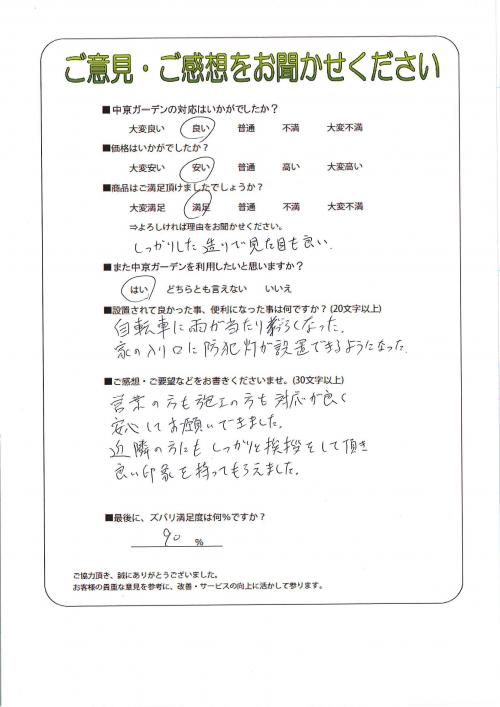 ご意見・ご感想をお聞かせください
■中京ガーデンの対応はいかがでしたか?
大変良い 良い 普通 不満 大変不満
■価格はいかがでしたか?
大変安い 安い 普通 高い 大変高い
■商品はご満足頂けましたでしょうか?
大変満足 満足 普通 不満 大変不満
⇒よろしければ理由をお聞かせください。
しっかりした造りで見た目も良い。
■また中京ガーデンを利用したいと思いますか?
はい どちらとも言えない いいえ
■設置されて良かった事、便利になった事は何ですか?(20文字以上)
自転車に雨が当たりづらくなった。
家の入り口に防犯灯が設置できるようになった。
■ご感想・ご要望などをお書きくださいませ。(30文字以上)
営業の方も施工の方も対応が良く
安心してお願いできました。
近隣の方にもしっかりと挨拶をして頂き
良い印象を持ってもらえました。
■最後に、ズバリ満足度は何%ですか?
90 %
ご協力頂き、誠にありがとうございました。
お客様の貴重な意見を参考に、改善・サービスの向上に活かして参ります。